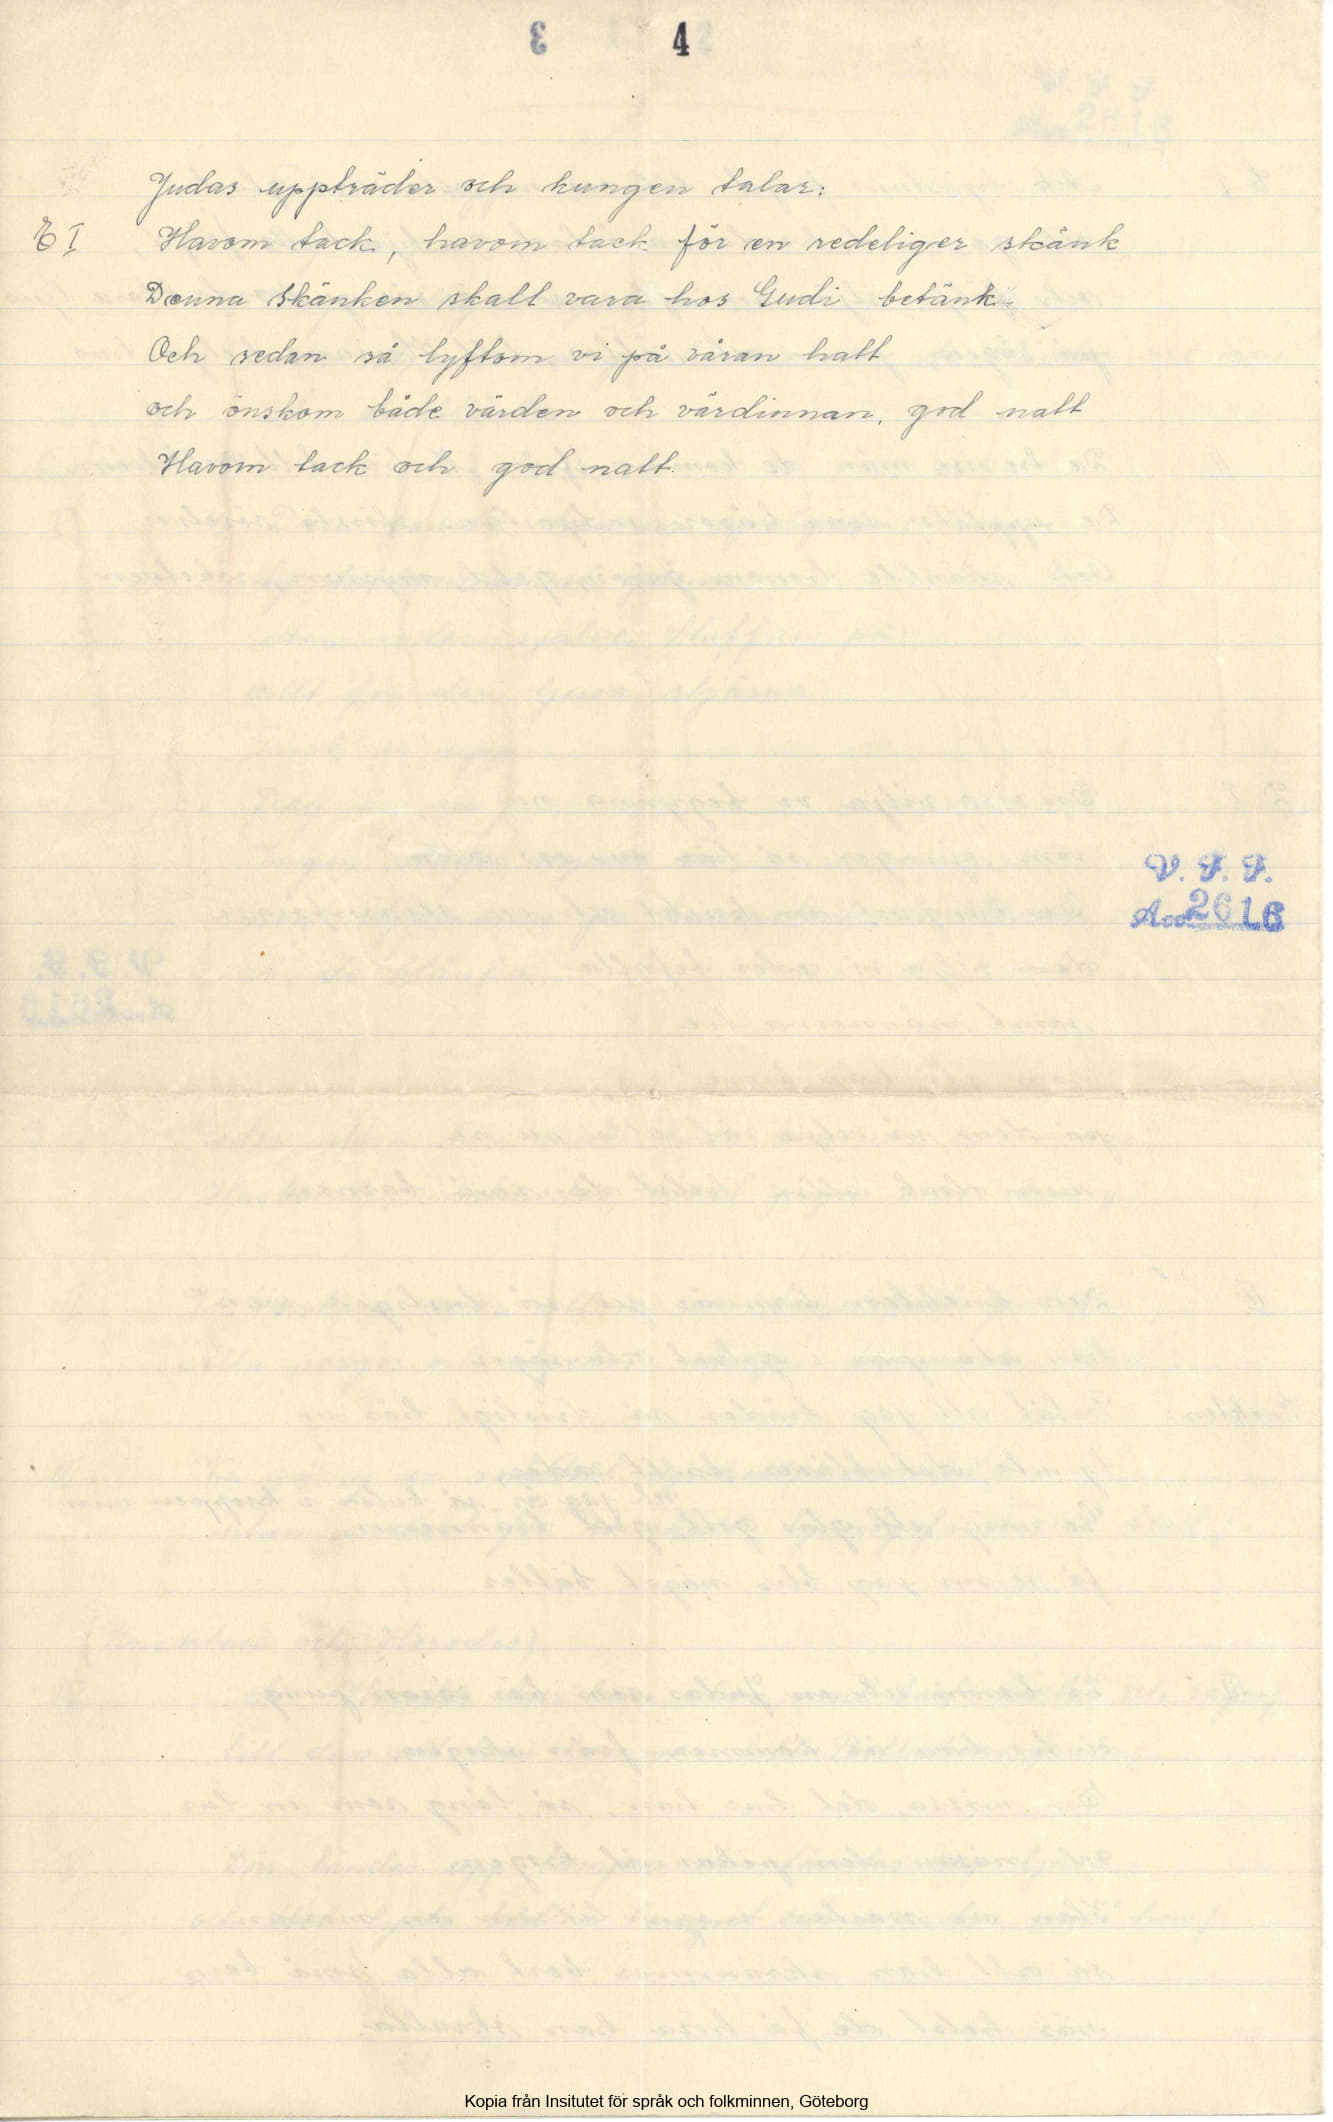 4
Judas uppträder och kungen talar:
E I Havom tack, havom tack för en redeliger skänk
Denna skänken skall vara hos Gudi betänk.
Och sedan så lyftom vi på våran hatt
och önskom både värden och värdinnan, god natt
Havom tack och god natt.
V. F. F.
Acc 2616
Kopia från Insitutet för språk och folkminnen, Göteborg